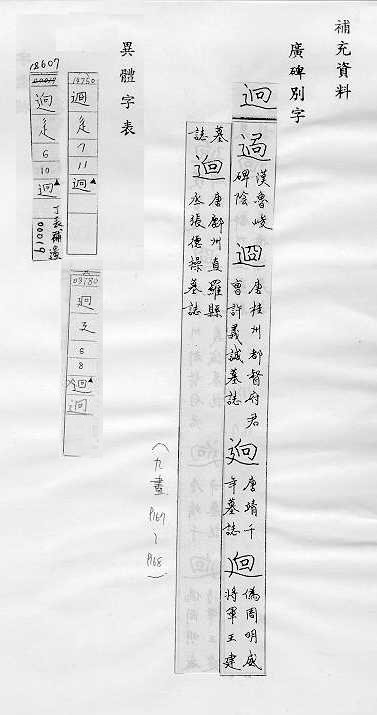 補充資料
廣碑別字
迥
漢魯峻
碑陰
迥
唐桂州都督府君
曹許義誠墓誌
迥
唐靖千
年墓誌
迥
偽周明威
將軍王建
墓
誌
迥
唐鄜州直羅縣
丞張德操墓誌
(九畫 P167~P168)
異體字表
14750
迴
辵
7
11
迴
18607
迥
辵
6
10
迴
丁表補遺
00019
03780
廻
廴
6
8
迴
迴